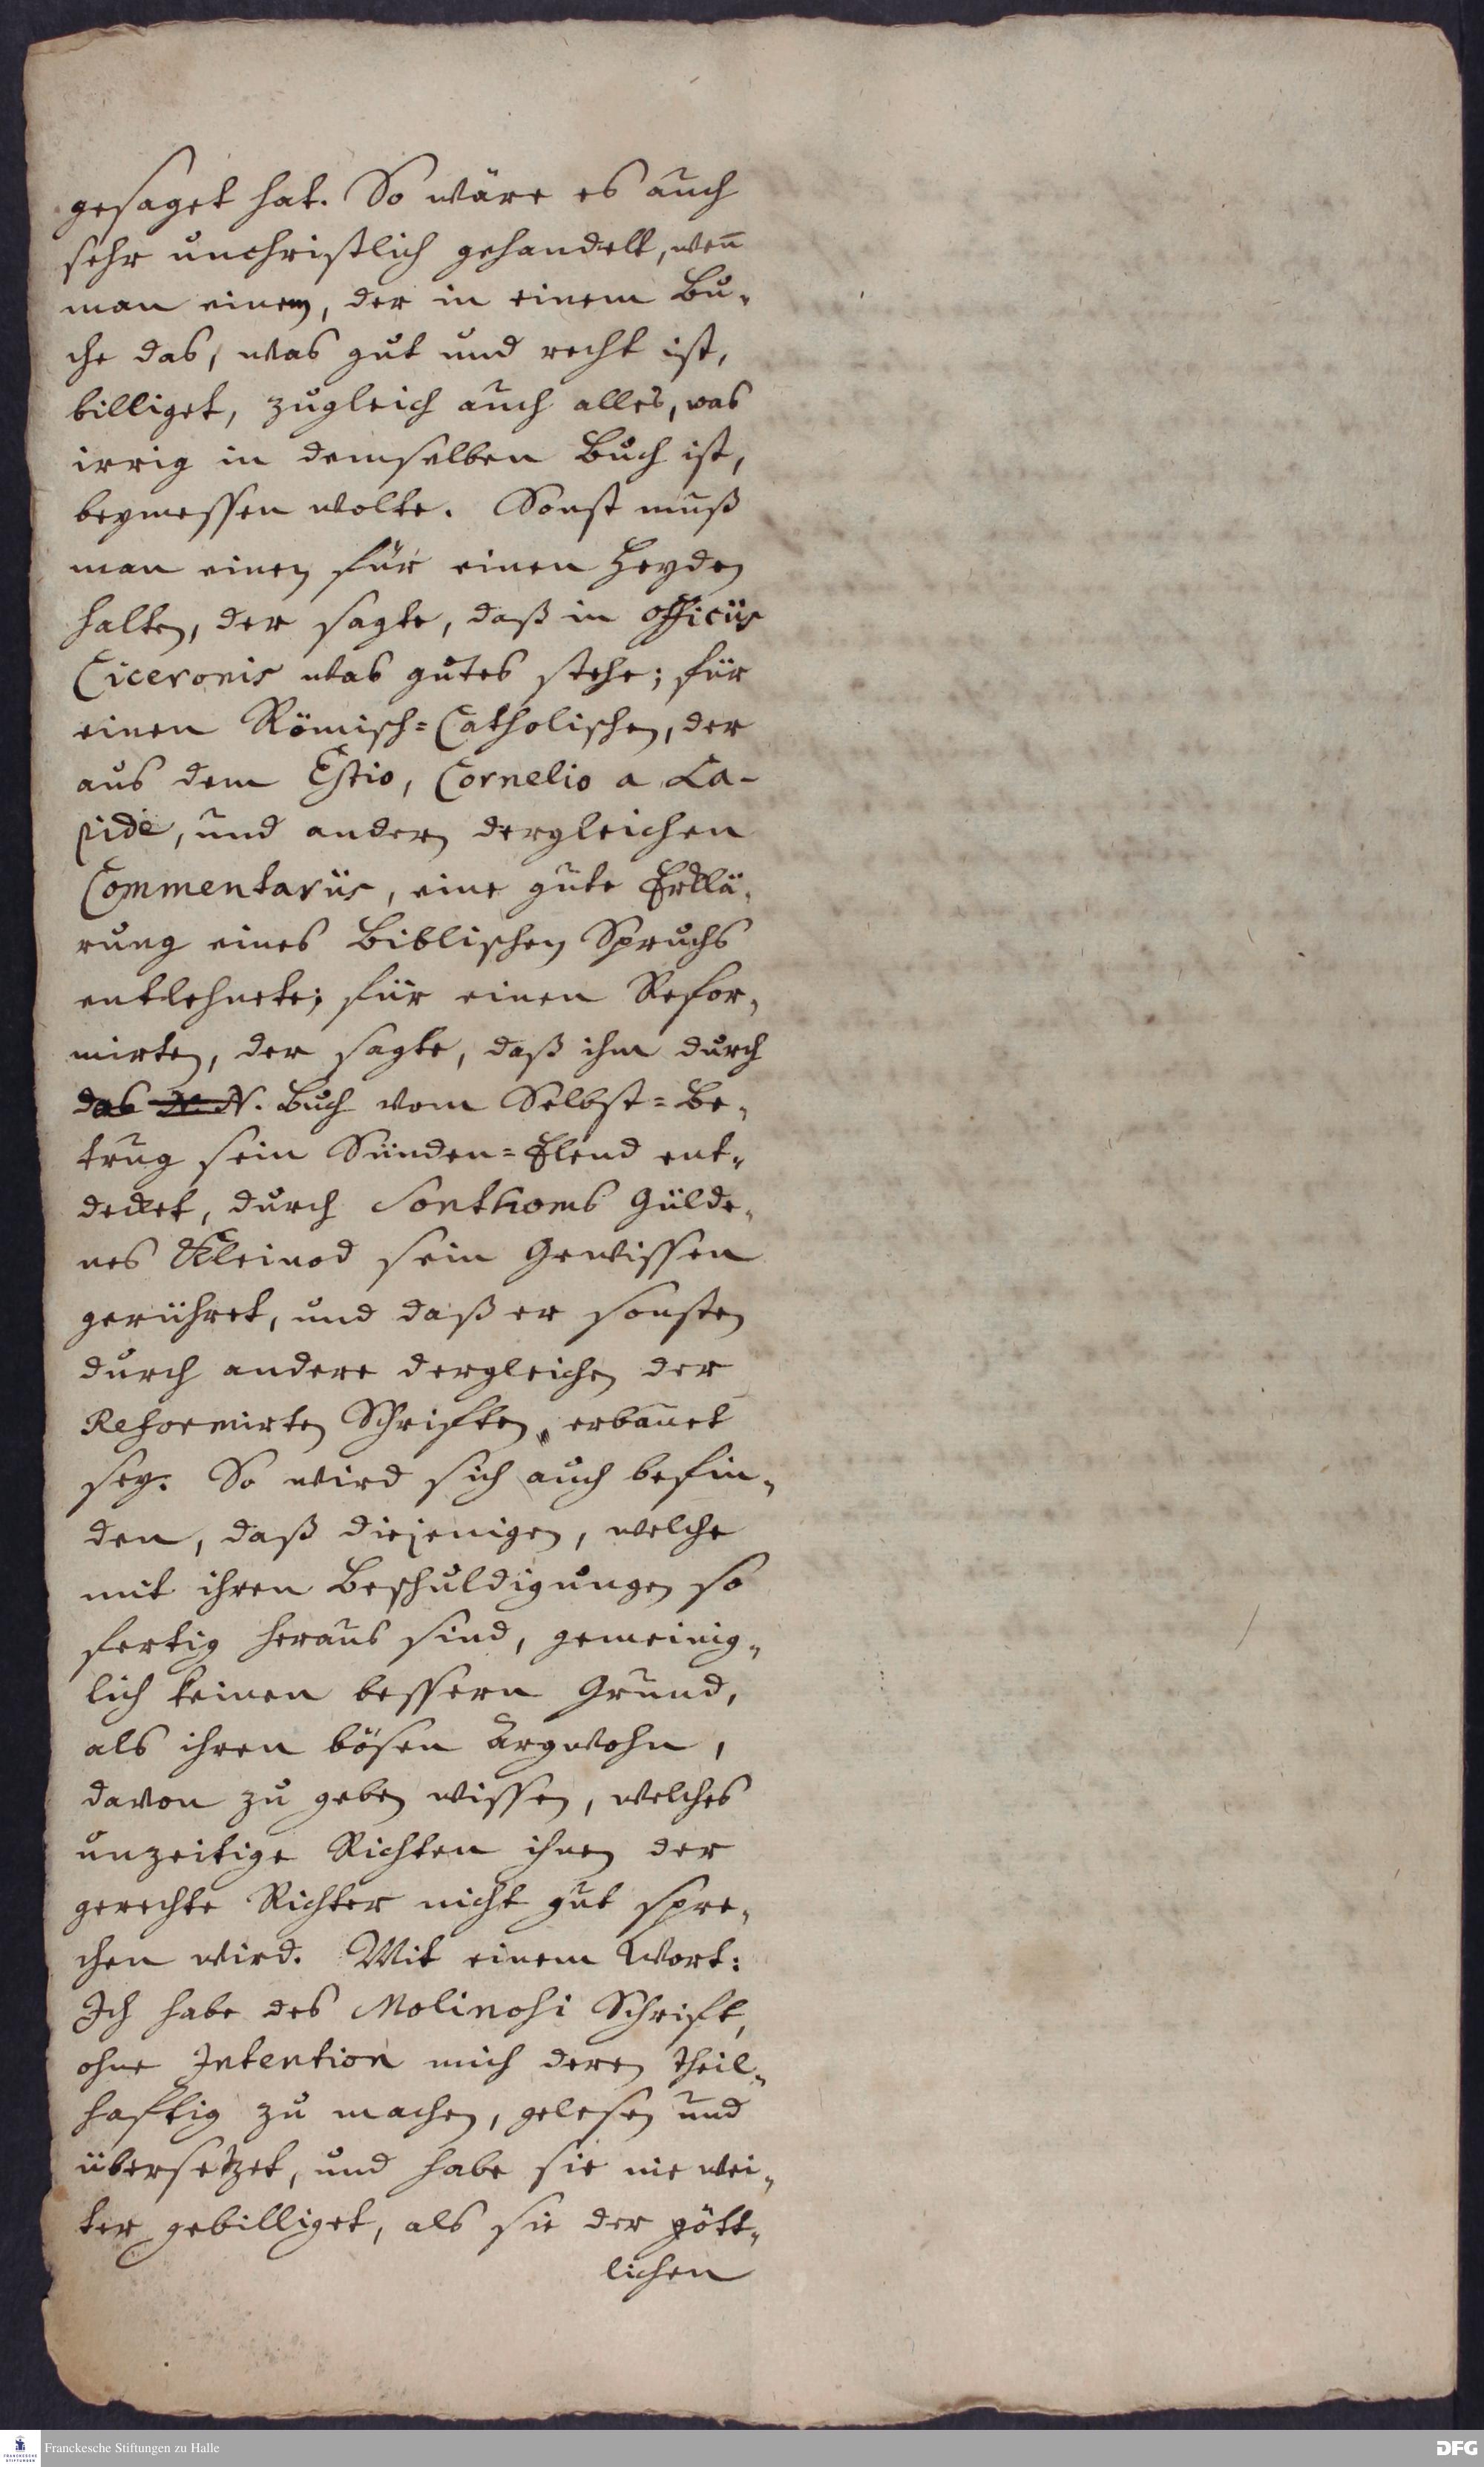 gesaget hat. So wäre es auch
sehr unchristlich gehandelt, weñ
man einem, der in einem Bu-
che das, was gut und recht ist,
billiget, zugleich auch alles, was
irrig in demselben Buch ist,
beymessen wolte. Sonst muß
man einen für einen Heyden
halten, der sagte, daß in officiis
Ciceronis was gutes stehe; für
einen Römisch=Catholischen, der
aus dem Estio, Cornelio a La-
pide, und andern dergleichen
Commentariis, eine gute Erklä-
rung eines Biblischen Spruchs
entlehnete; für einen Refor-
mirten, der sagte, daß ihm durch
das N. N. Buch vom Selbst=Be-
trug sein Sünden=Elend ent-
decket, durch Sonthoms Gülde-
nes Kleinod sein Gewissen
gerühret, und daß er sonsten
durch andere dergleichen der
Reformirten Schrifften erbauet
sey. So wird sich auch befin-
den, daß diejenigen, welche
mit ihren Beschuldigungen so
fertig heraus sind, gemeinig-
lich keinen bessern Grund,
als ihren bösen Argwohn,
davon zu geben wissen, welches
unzeitige Richten ihnen der
gerechte Richter nicht gut spre-
chen wird. Mit einem Wort:
Ich habe des Molinosi Schrift,
ohne Intention mich deren theil-
hafftig zu machen, gelesen und
übersetzet, und habe sie nie wei-
ter gebilliget, als sie der gött-
lichen
Franckesche Stiftungen zu Halle
DFG